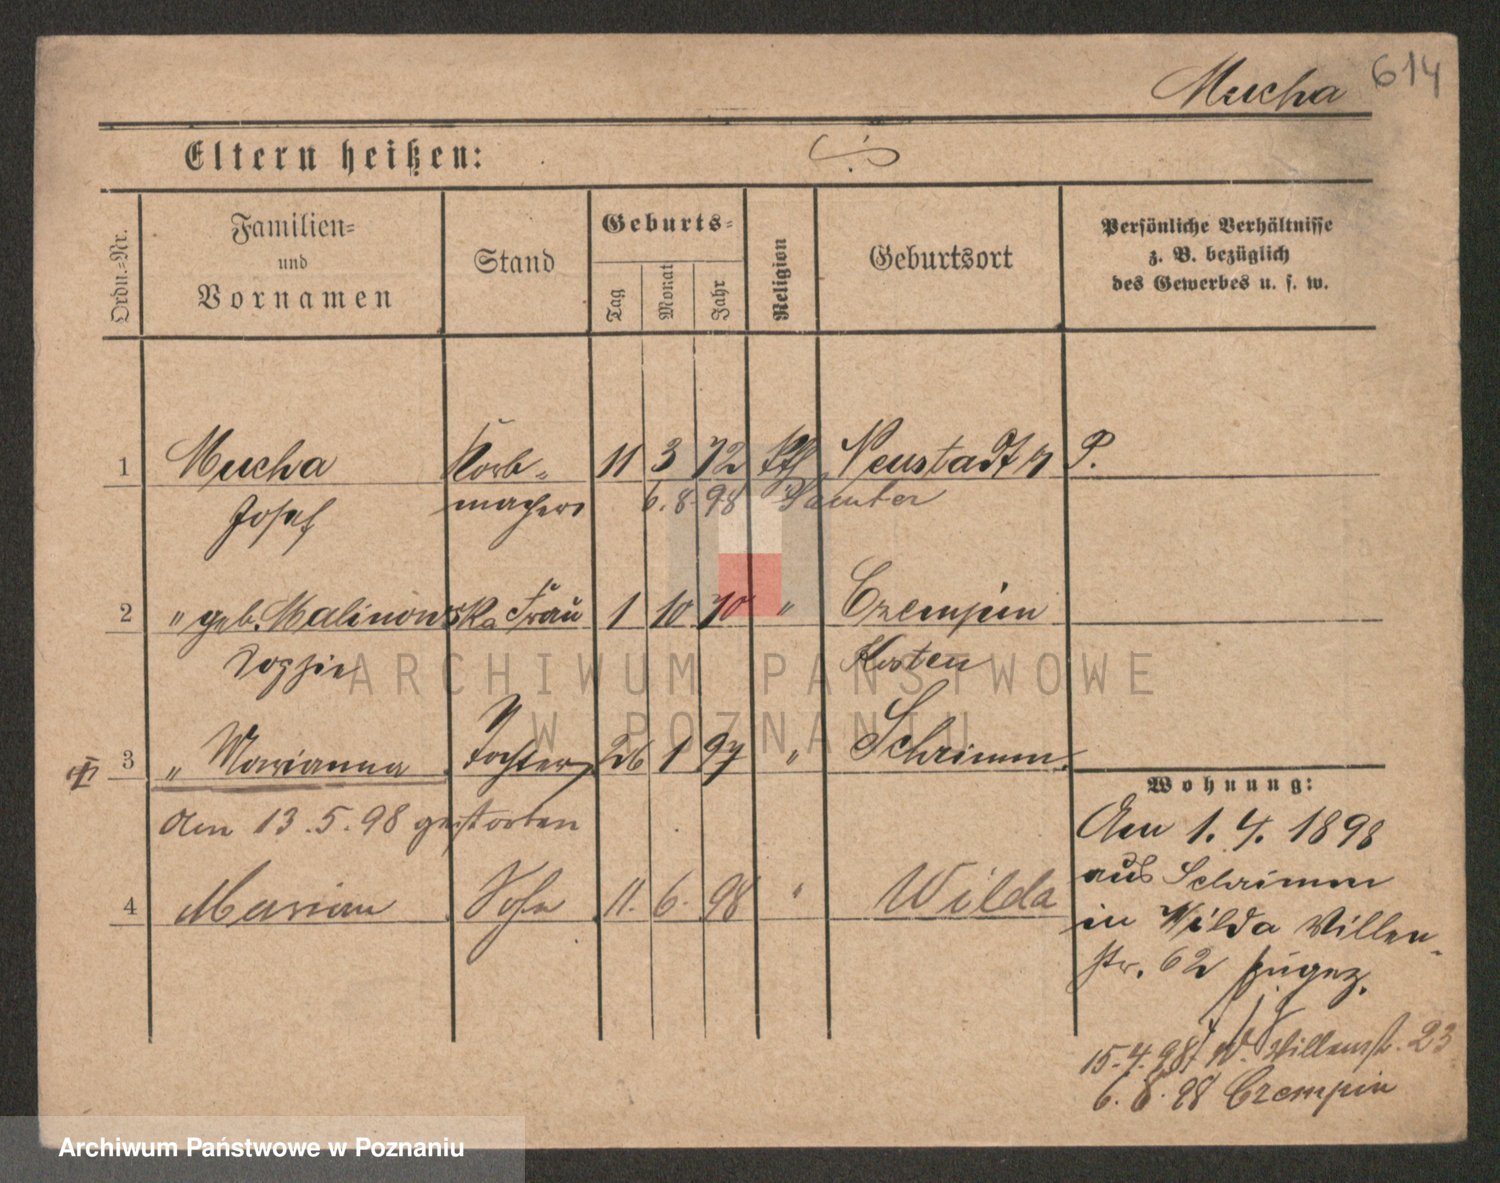 Mucha 614
Eltern heißen:
Ordn.=Nr.
Familien=
und
Vornamen
Stand
Geburts=
Tag
Monat
Jahr
Religion
Geburtsort
Persönliche Verhältnisse
z. B. bezüglich
des Gewerbes u. s. w.
1 Mucha Korb- 11 3 72 kth Neustadt P.
Josef macher 6.8.98 Samter
2 " geb. Malinowska Frau 1 10 70 " Czempin
Sophie Kosten
3 " Marianna Tochter 26 1 97 " Schrimm.
Am 13.5.98 gestorben
4 Marian Sohn 11. 6. 98 " Wilda
Wohnung:
Am 1. 4. 1898
aus Schrimm
in Wilda Villen-
str. 62 zugez.
15.4.98 W. Villenstr. 23
6.8.98 Czempin
ARCHIWUM PAŃSTWOWE
W POZNANIU
Archiwum Państwowe w Poznaniu